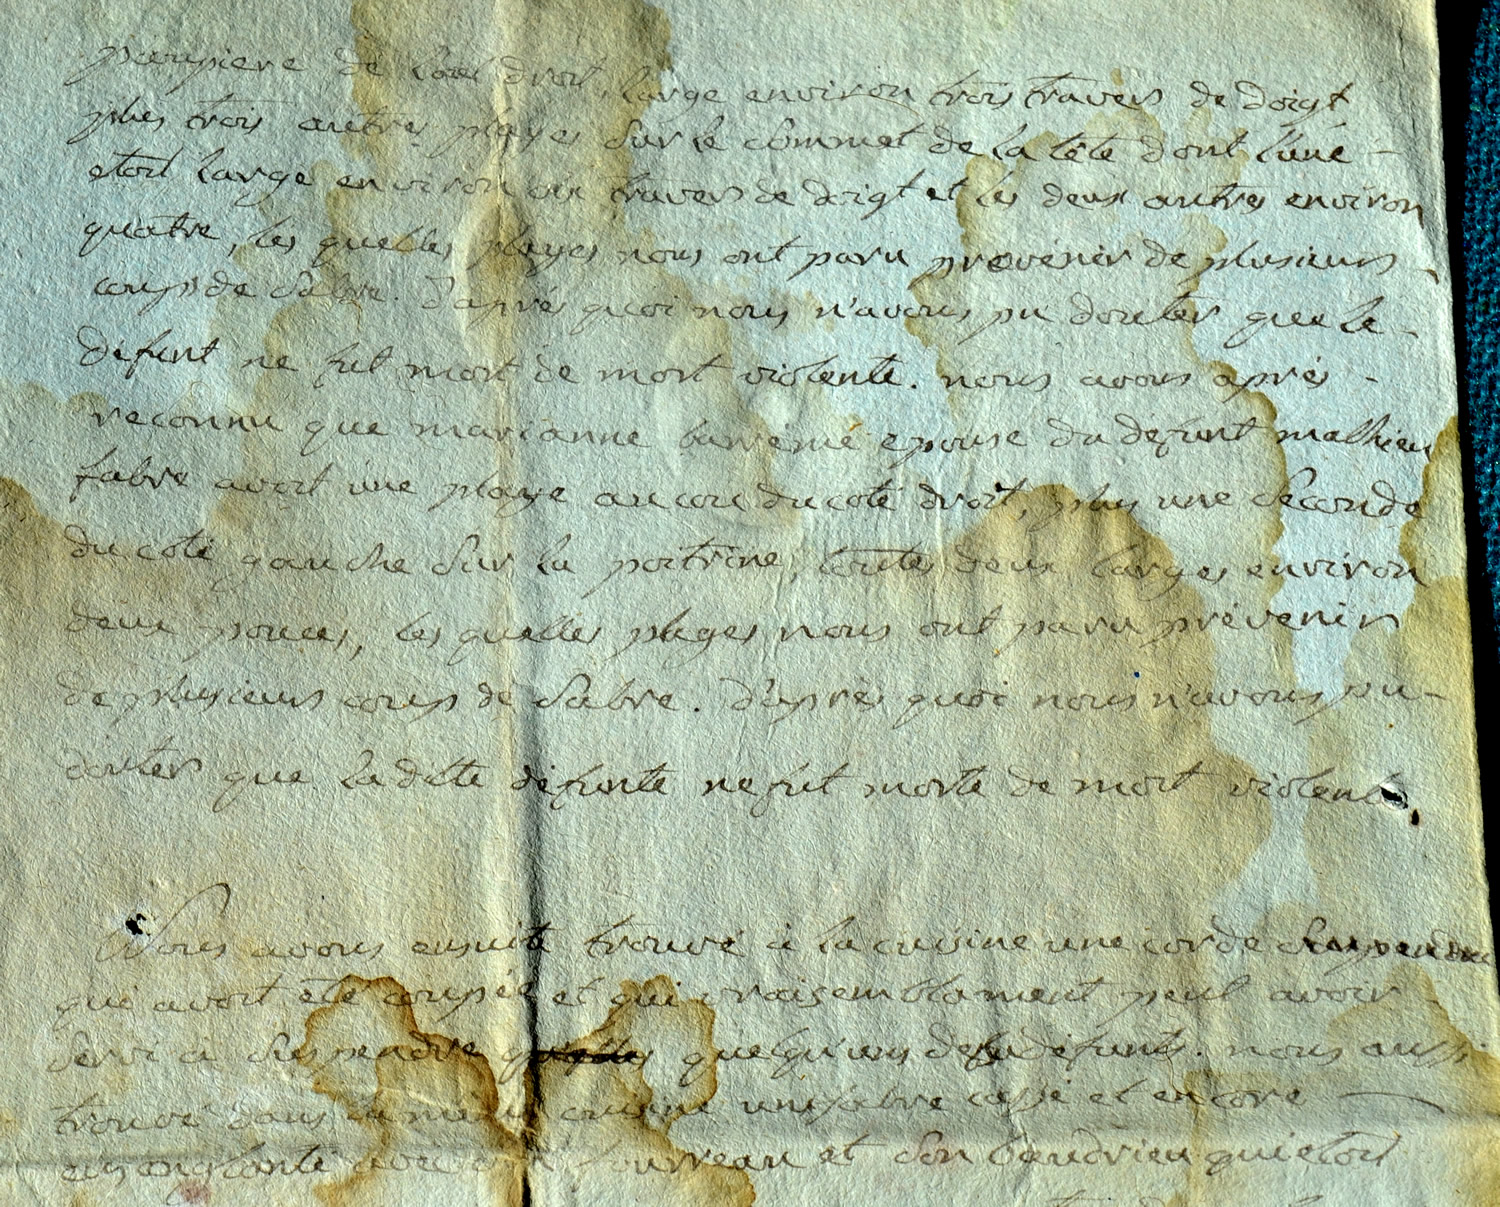 paupiere de l'oeil droit, large environ trois travers de doigt
plus trois autres playes sur le sommet de la tête dont l'une
etoit large environ un travers de doigt et les deux autres environ
quatre, les quelles playes nous ont paru provenir de plusieurs
coups de sabre. d'après quoi nous n'avons pu douter que le
défunt ne fut mort de mort violente. nous avons après
reconnu que marianne epouse du défunt mathieu
fabre avoit une playe au cou du coté droit, plus une seconde
du coté gauche sur la poitrine, toutes deux larges environ
deux pouces, les quelles playes nous ont paru prévenir
de plusieurs coups de sabre. d'après quoi nous n'avons pu
douter que la ditte défunte ne fut morte de mort violente.
Nous avons ensuite trouvé à la cuisine une corde
qui avoit été coupée et qui vraisemblament peut avoir
servi à suspendre quelqu'uns des défunts. nous aussi
trouvé dans la même cuisine un sabre cassé et encore
ensanglanté avec son fourreau et son baudrieu qui etoit